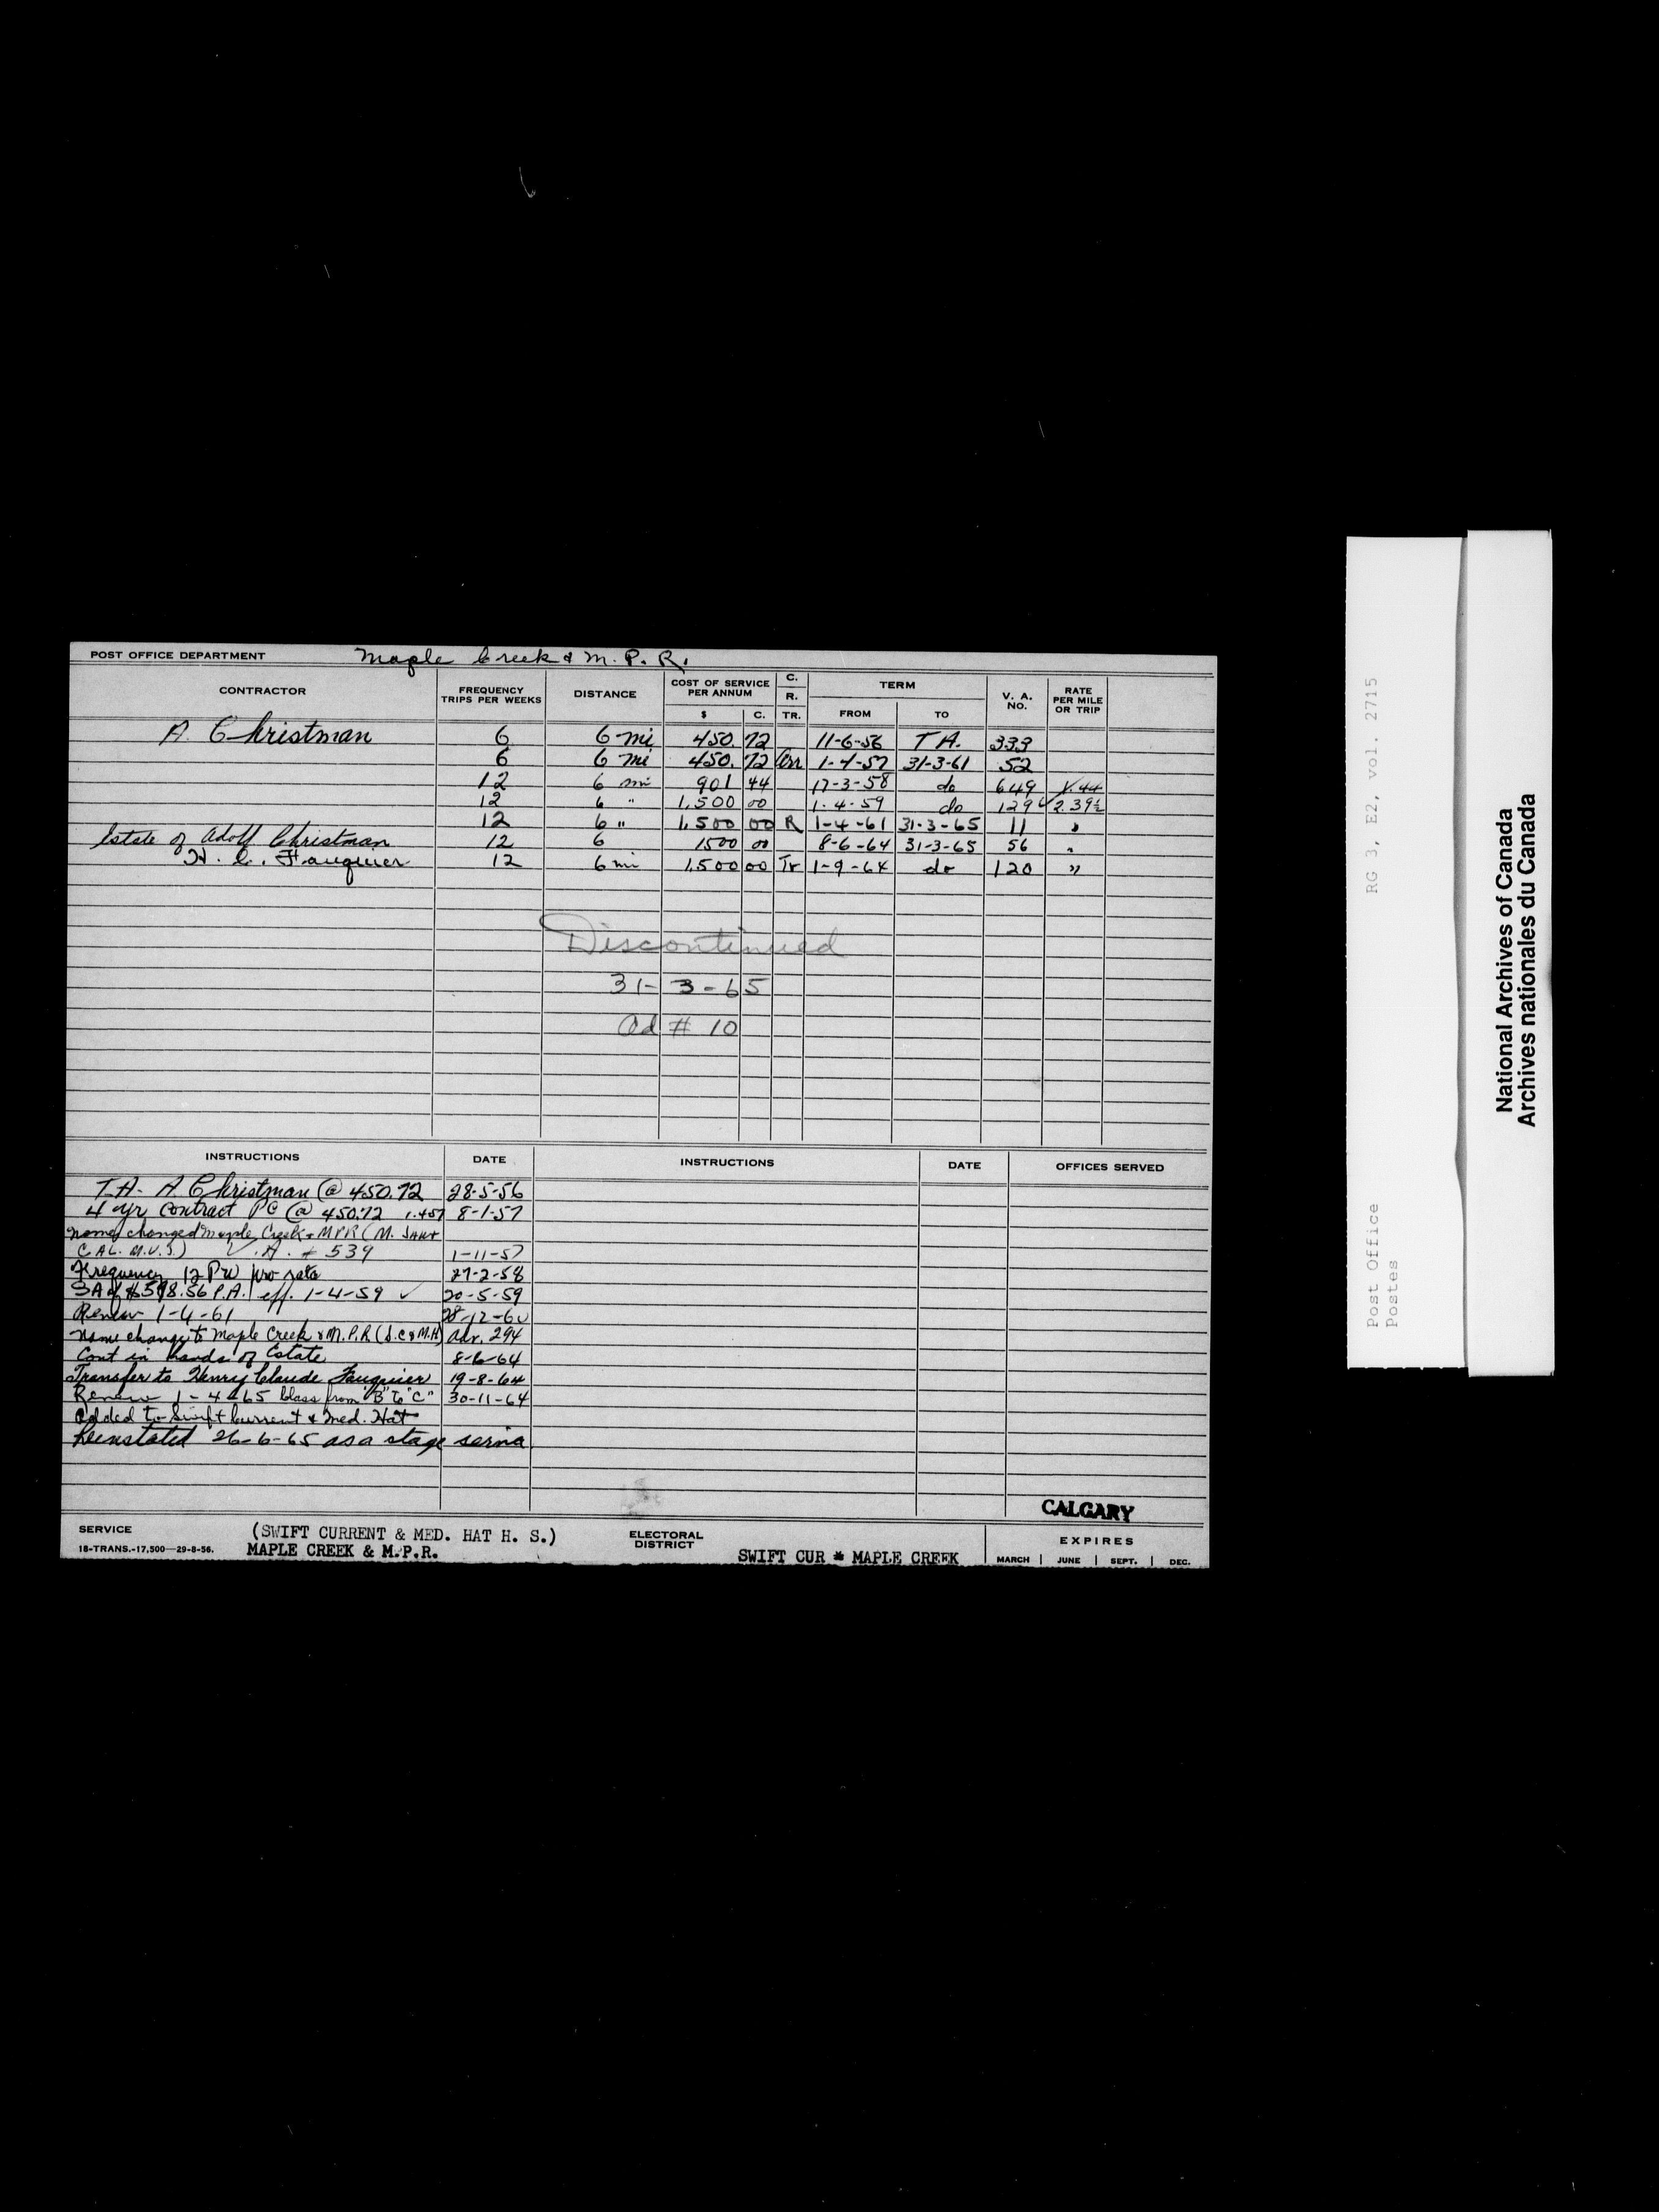 POST OFFICE DEPARTMENT Maple Creek & M. P. R.
CONTRACTOR FREQUENCY TRIPS PER WEEKS DISTANCE COST OF SERVICE PER ANNUM $ C. C. R. TR. TERM FROM TO V. A. NO. RATE PER MILE OR TRIP
A Christman 6 6 mi 450. 72 11-6-56 T A. 333
6 6 mi 450. 72 1-4-57 31-3-61 52
12 6 mi 901 44 17-3-58 do 649 1.44
12 6 " 1,500 00 1-4-59 do 129 2.39½
12 6 " 1,500 00 R 1-4-61 31-3-65 11 "
Estate of Adolf Christman 12 6 1500 00 8-6-64 31-3-65 56 "
H. C. Fauquier 12 6 mi 1,500 00 Tr 1-9-64 do 120 "
Discontinued
31-3-65
Ad # 10
INSTRUCTIONS DATE INSTRUCTIONS DATE OFFICES SERVED
T.A. A Christman @ 450.72 28-5-56
4 yr contract PC @ 450.72 1.4.57 8-1-57
name changed Maple Creek & MPR (M. JAW &
CAL. M.V.S.) V.A. # 539 1-11-57
Frequency 12 PW pro rata 27-2-58
SA of $598.56 P.A. eff. 1-4-59 ✓ 20-5-59
Renew 1-4-61 28-12-60
Name change to Maple Creek & M.P.R (S.C & M.H) Adv. 294
Cont in hands of Estate 8-6-64
Transfer to Henry Claude Fauquier 19-8-64
Renew 1-4-65 Class from "B" to "C" 30-11-64
Added to Swift Current & Med. Hat
Reinstated 26-6-65 as a stage
CALGARY
SERVICE (SWIFT CURRENT & MED. HAT H. S.) ELECTORAL DISTRICT EXPIRES
18-TRANS.-17,500—29-8-56. MAPLE CREEK & M.P.R. SWIFT CUR * MAPLE CREEK MARCH | JUNE | SEPT. | DEC.
RG 3, E2, vol. 2715
Post Office
Postes
National Archives of Canada
Archives nationales du Canada